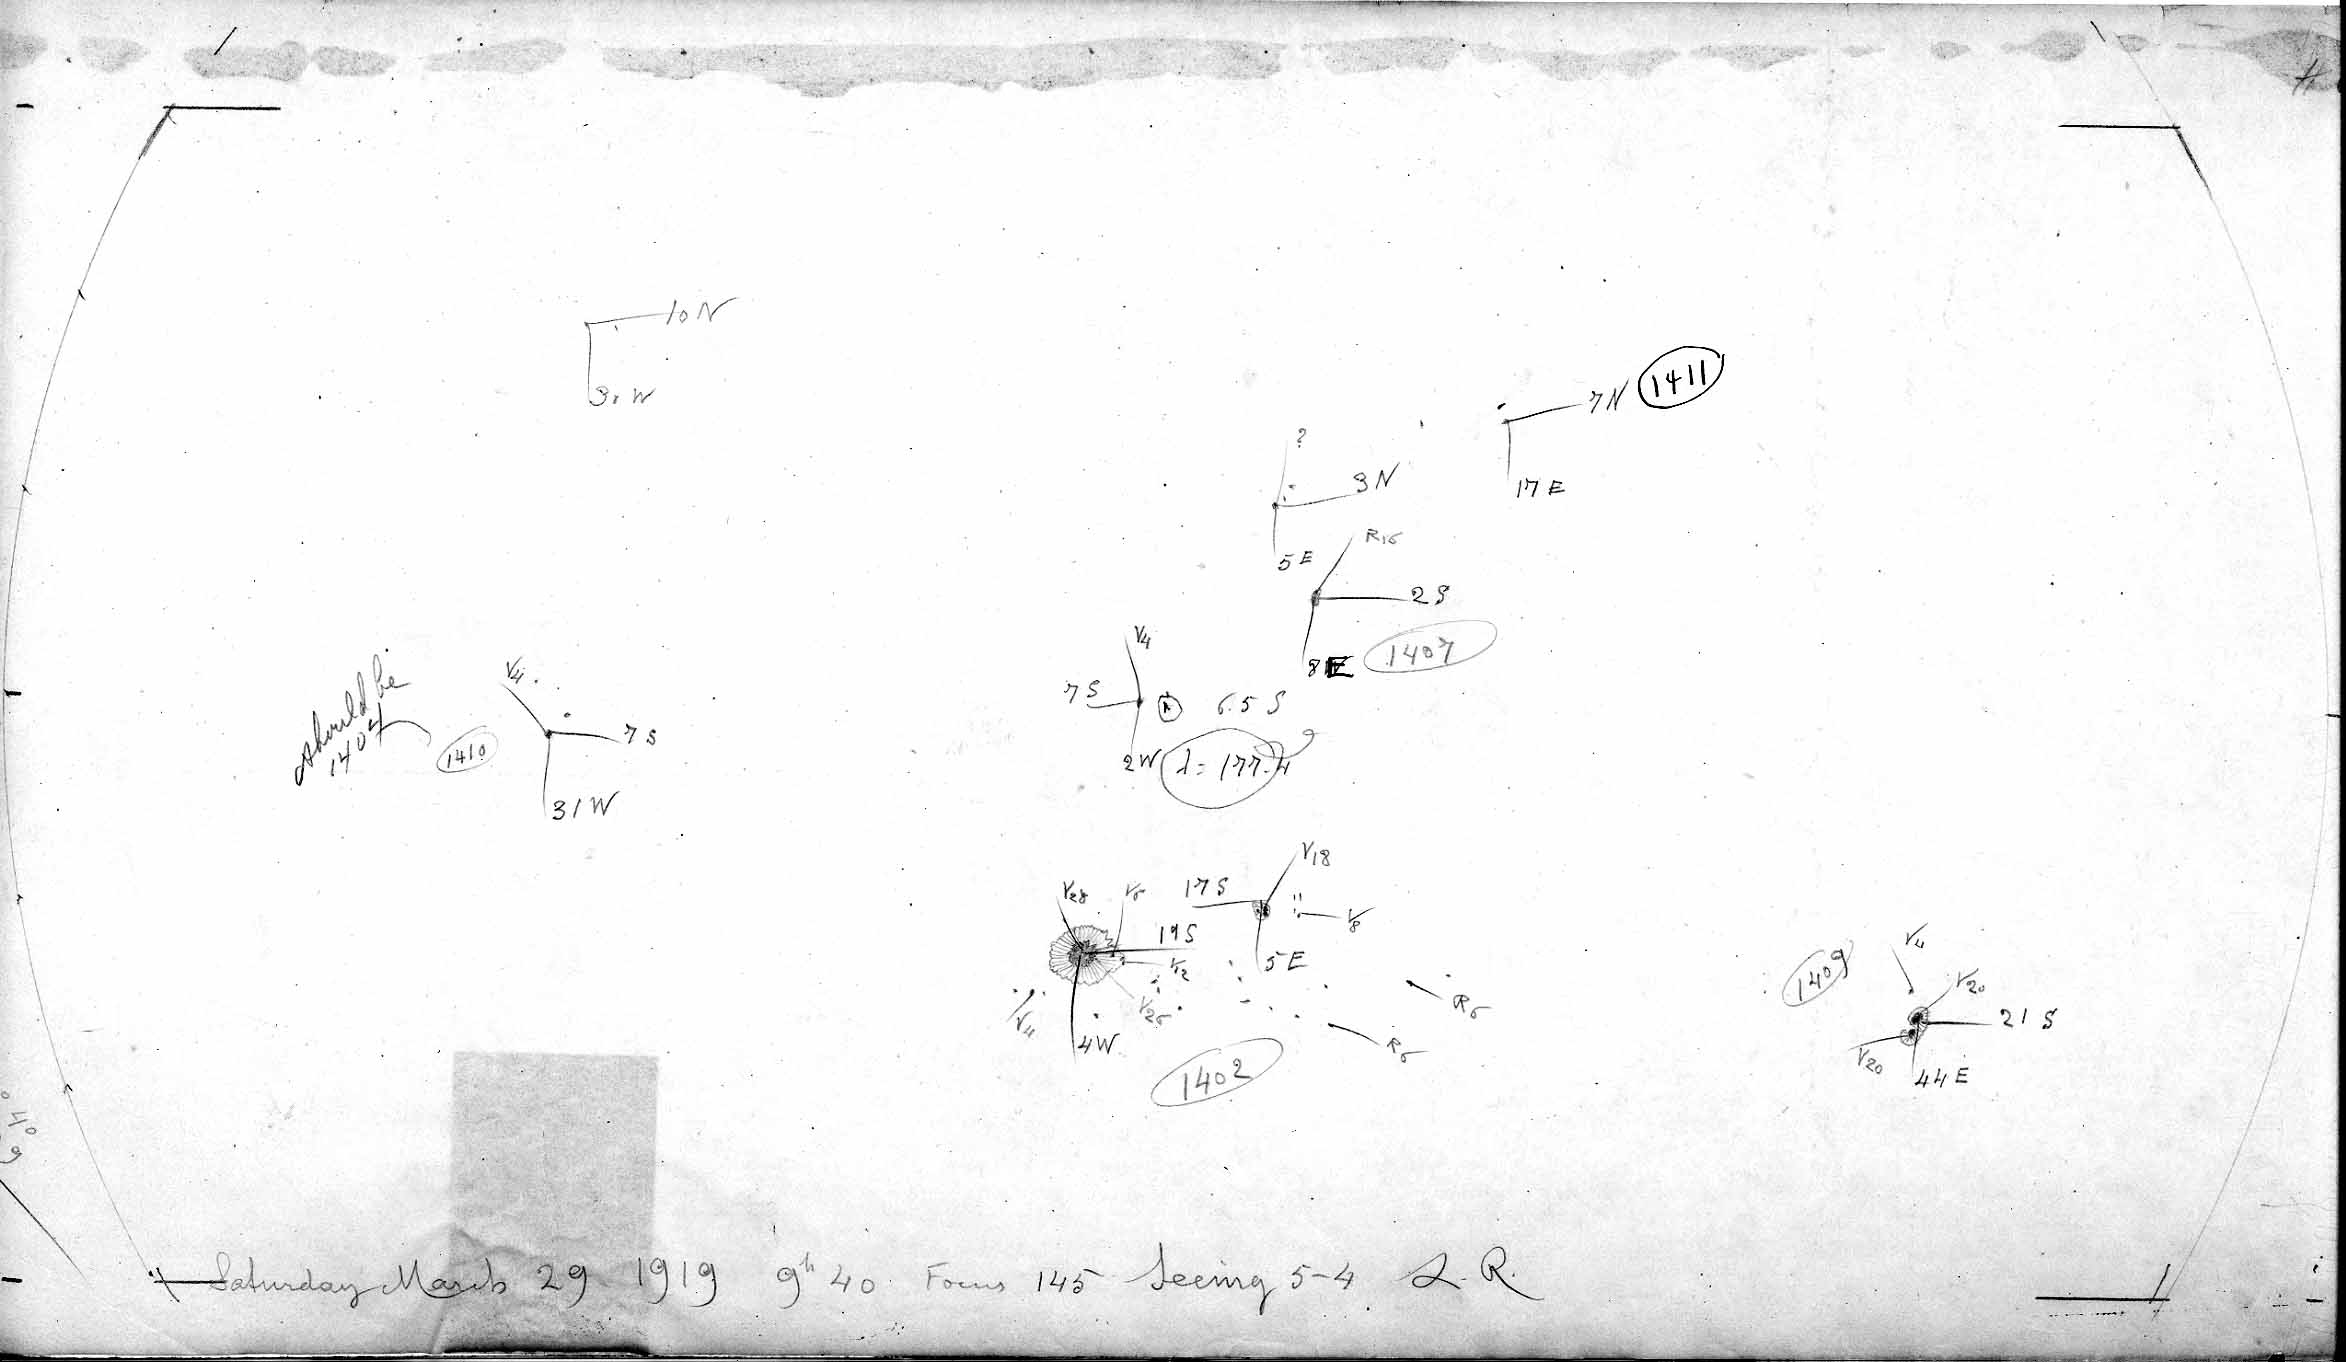 10 N
7 N 1411
17 E
?
3 N
5 E
R16
2 S
8 E 1407
V4
7 S 6.5 S
2 W λ = 177.4
should be
1404
1410
V4
7 S
31 W
V18
17 S
V8
5 E
V28
19 S
V12
V4
4 W
R6
R6
1402
1409
V4
V20
21 S
V20
44 E
40
9
Saturday March 29 1919 9h 40 Focus 145 Seeing 5-4 L. R.